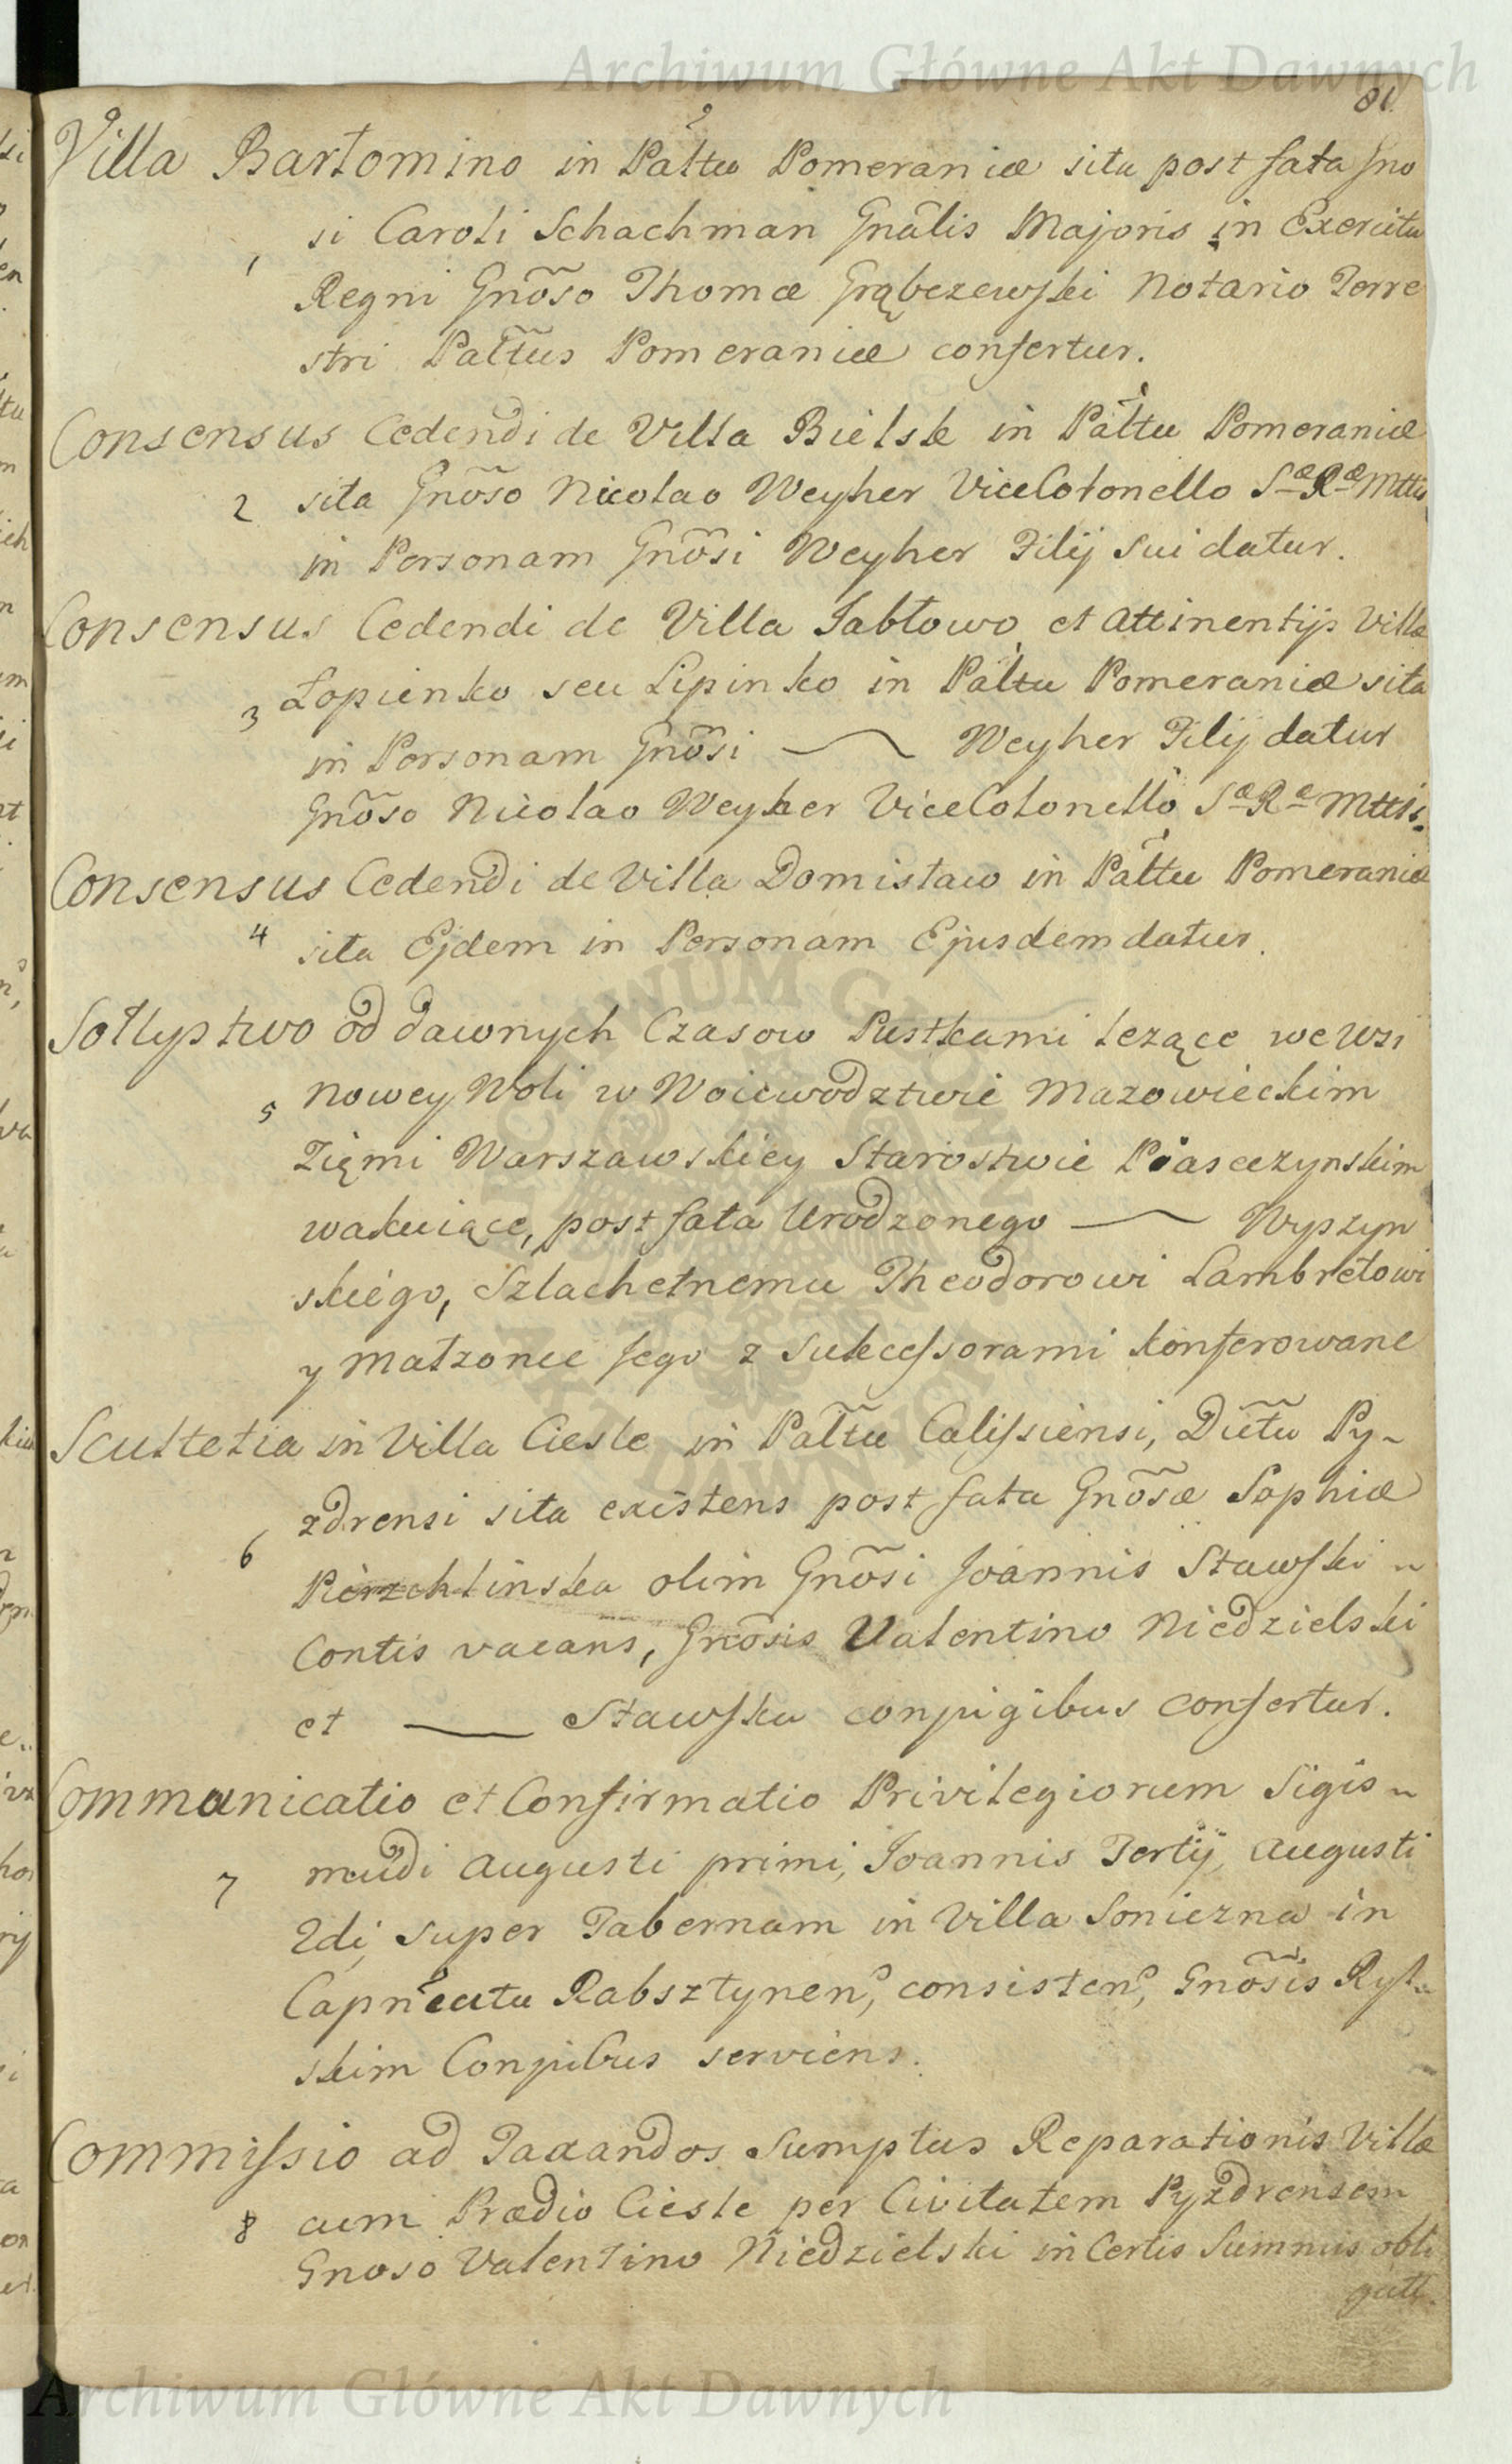 Archiwum Główne Akt Dawnych
81.
Villa Bartomino in Pałtu Pomeraniæ sita post fata Gno
1 si Caroli Schachman Gnãlis Majoris in Exercitu
Regni Gnõso Thomæ Grąbczewski Notario Terre
stri Pałtus Pomeraniæ confertur.
Consensus Cedendi de Villa Bielsk in Pałtu Pomeraniæ
2 sita Gnõso Nicolao Weyher ViceColonello Sæ Ræ Mttis
in Personam Gnõsi Weyher Filij sui datur.
Consensus Cedendi de Villa Jabłowo et attinentijs Villæ
3 Łopienko seu Lipinko in Pałtu Pomeraniæ sita
in Personam Gnõsi — Weyher Filij datur
Gnõso Nicolao Weyher ViceColonello Sæ Ræ Mttis.
Consensus Cedendi de Villa Domisław in Pałtu Pomeraniæ
4 sita Ejdem in Personam Ejusdem datur.
Sołtystwo od dawnych Czasow Pustkami leżące we wsi
5 Nowey Woli w Woiewodztwie Mazowieckim
Zięmi Warszawskiey Starostwie Piaseczynskim
wakuiące, post fata Urodzonego — Wyszyn
skiego, Szlachetnemu Theodorowi Lambretowi
y Małzonce Jego z Sukcessorami konferowane
Scultetia in Villa Ciesle in Pałtu Calissiensi, Dictu Py-
6 zdrensi sita existens post fata Gnõsæ Sophiæ
Pierzchlinska olim Gnõsi Joannis Stawski -
Contis vacans, Gnosis Valentino Niedzielski
et — Stawska conjugibus confertur.
Communicatio et Confirmatio Privilegiorum Sigis-
7 mudi Augusti primi, Joannis Tertij, Augusti
2di, super Tabernam in Villa Soniczna in
Capneatu Rabsztynen, consisten, Gnõsis Ryl-
skim Conjubus serviens.
Commissio ad Taxandos Sumptus Reparationis Villæ
8 cum Prædio Ciesle per Civitatem Pyzdrensem
Gnoso Valentino Niedzielski in Certis Summis obli
gatt.
Archiwum Główne Akt Dawnych